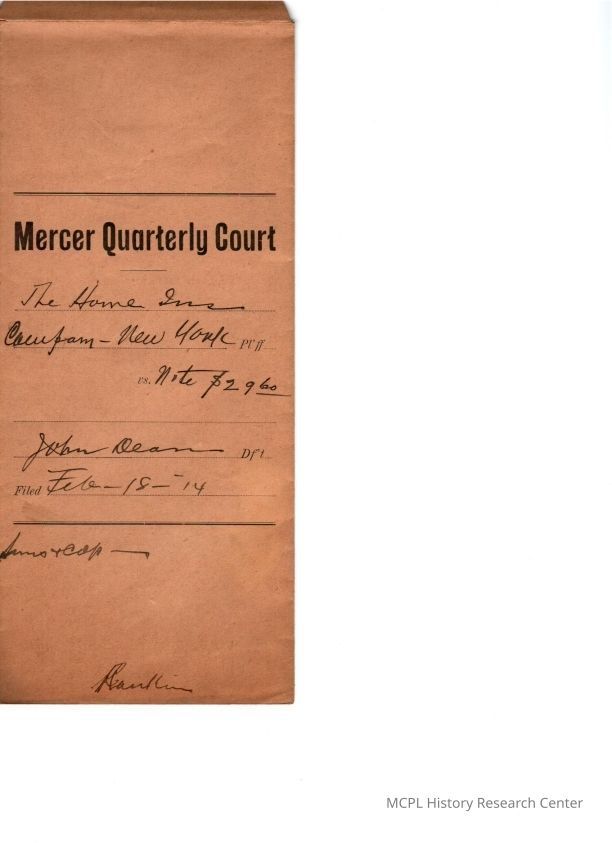 Mercer Quarterly Court
The Home Ins
Company - New York Pl'ff
vs. Note $29 60
John Dean Df't
Filed Feb - 18 - 14
Sums + cop -
MCPL History Research Center